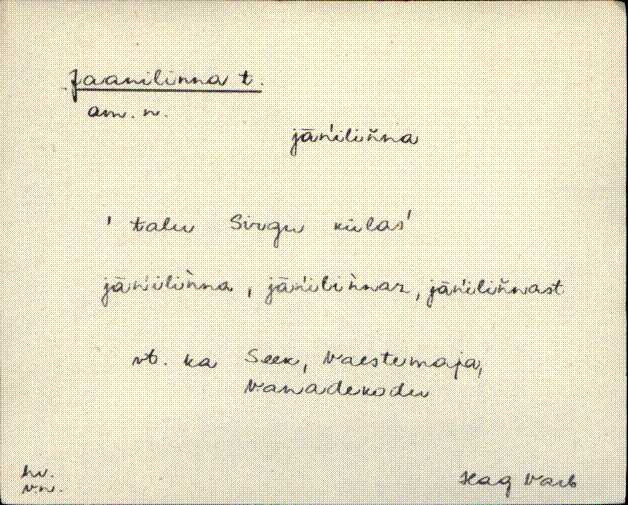 Jaanilinna t.
am. n.
jāńiliǹna
' talu Sirgu külas'
jāńiliǹna, jāńiliǹnaz, jāńiliǹnast
vt. ka Seek, Vaestemaja,
Vanadekodu
hv.
vn.
Hag Varb